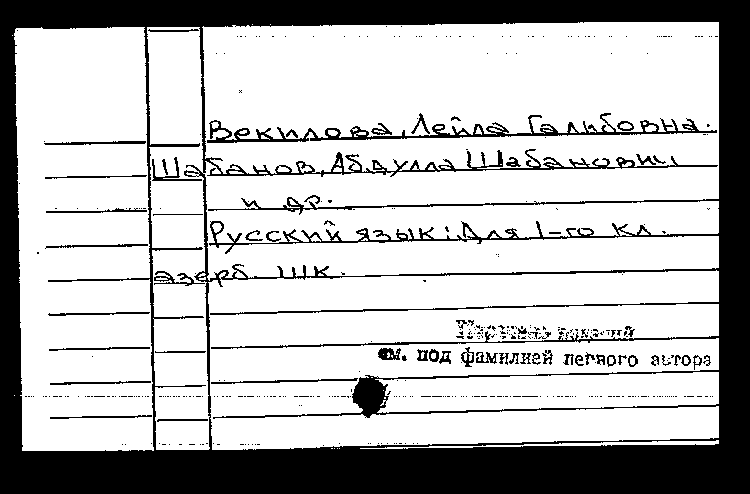 Векилова, Лейла Галибовна.
Шабанов, Абдулла Шабанович
и др.
Русский язык: Для 1-го кл.
азерб. шк.
Перечень изданий
см. под фамилией первого автора